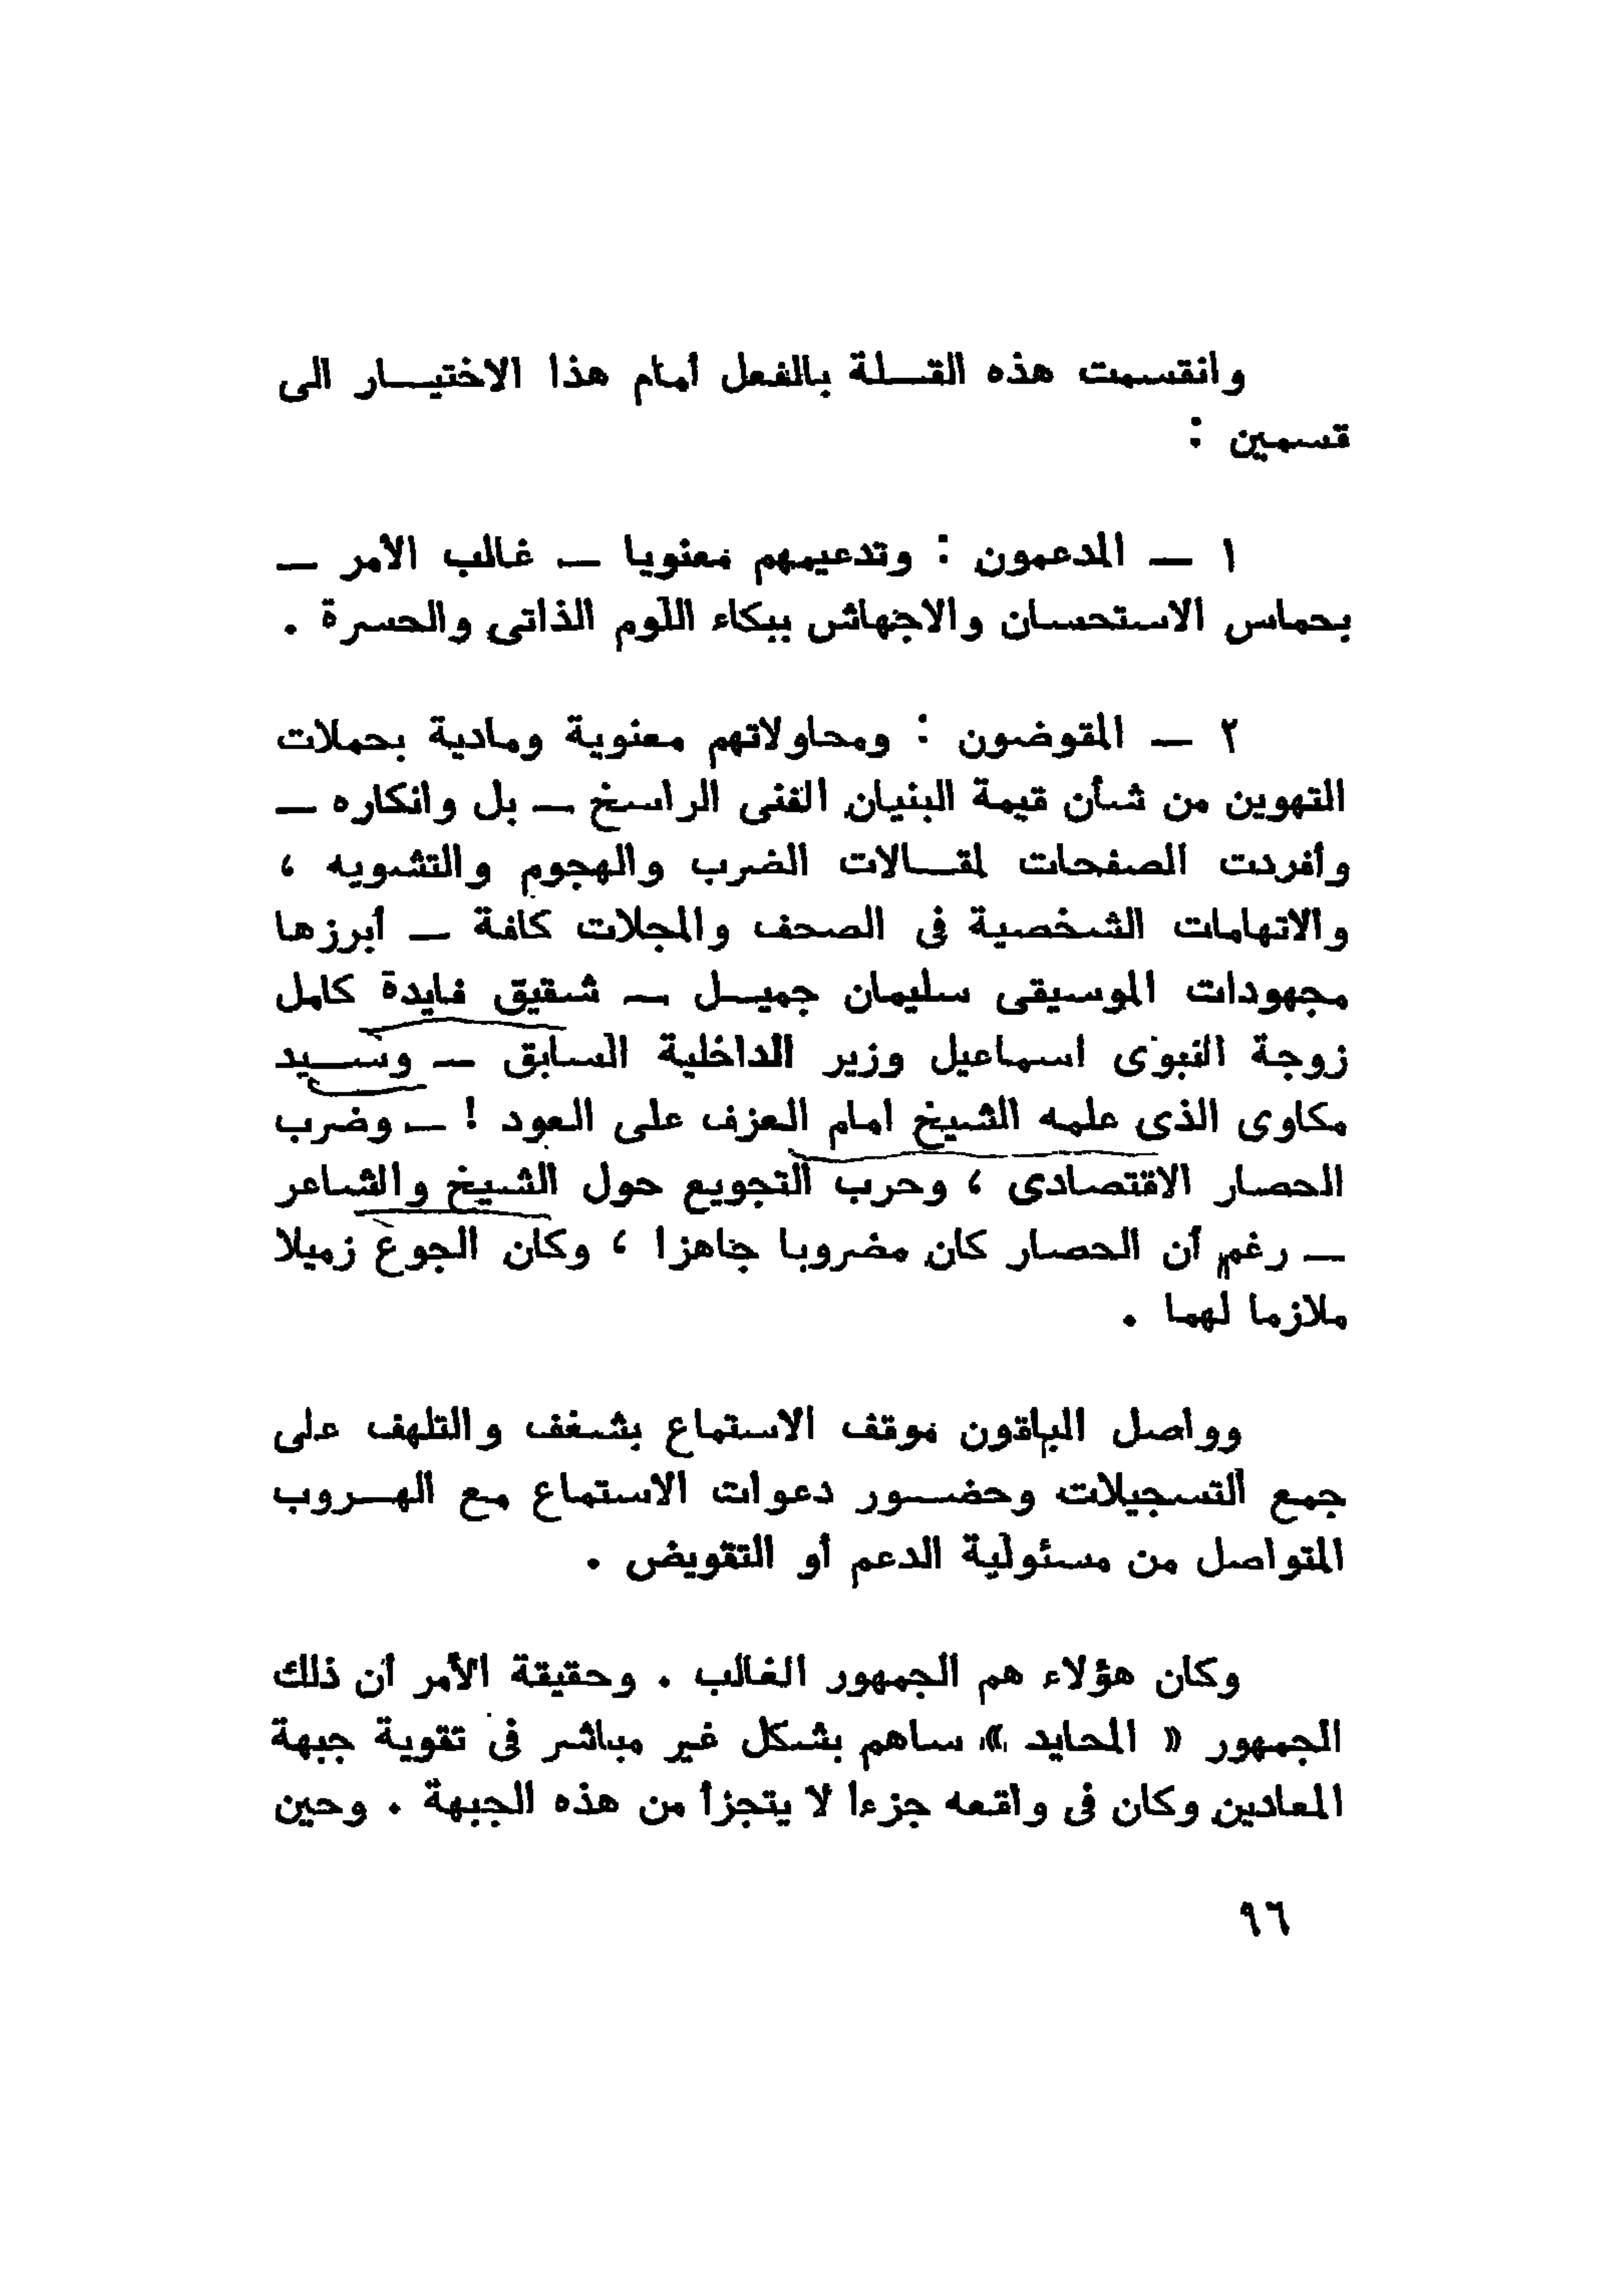 وانقسمت هذه القلة بالفعل أمام هذا الاختيار الى
قسمين :
١ — المدعمون : وتدعيمهم معنويا — غالب الأمر —
بحماس الاستحسان والاجهاش ببكاء اللوم الذاتى والحسرة .
٢ — المقوضون : ومحاولاتهم معنوية ومادية بحملات
التهوين من شأن قيمة البنيان الفنى الراسخ — بل وانكاره —
وأفردت الصفحات لمقالات الضرب والهجوم والتشويه ،
والاتهامات الشخصية فى الصحف والمجلات كافة — أبرزها
مجهودات الموسيقى سليمان جميل — شقيق فايدة كامل
زوجة النبوى اسماعيل وزير الداخلية السابق — وسيد
مكاوى الذى علمه الشيخ امام العزف على العود ! — وضرب
الحصار الاقتصادى ، وحرب التجويع حول الشيخ والشاعر
— رغم أن الحصار كان مضروبا جاهزا ، وكان الجوع زميلا
ملازما لهما .
وواصل الباقون موقف الاستماع بشغف والتلهف على
جمع التسجيلات وحضور دعوات الاستماع مع الهروب
المتواصل من مسئولية الدعم أو التقويض .
وكان هؤلاء هم الجمهور الغالب . وحقيقة الأمر أن ذلك
الجمهور « المحايد » ساهم بشكل غير مباشر فى تقوية جبهة
المعادين وكان فى واقعه جزءا لا يتجزأ من هذه الجبهة . وحين
٩٦